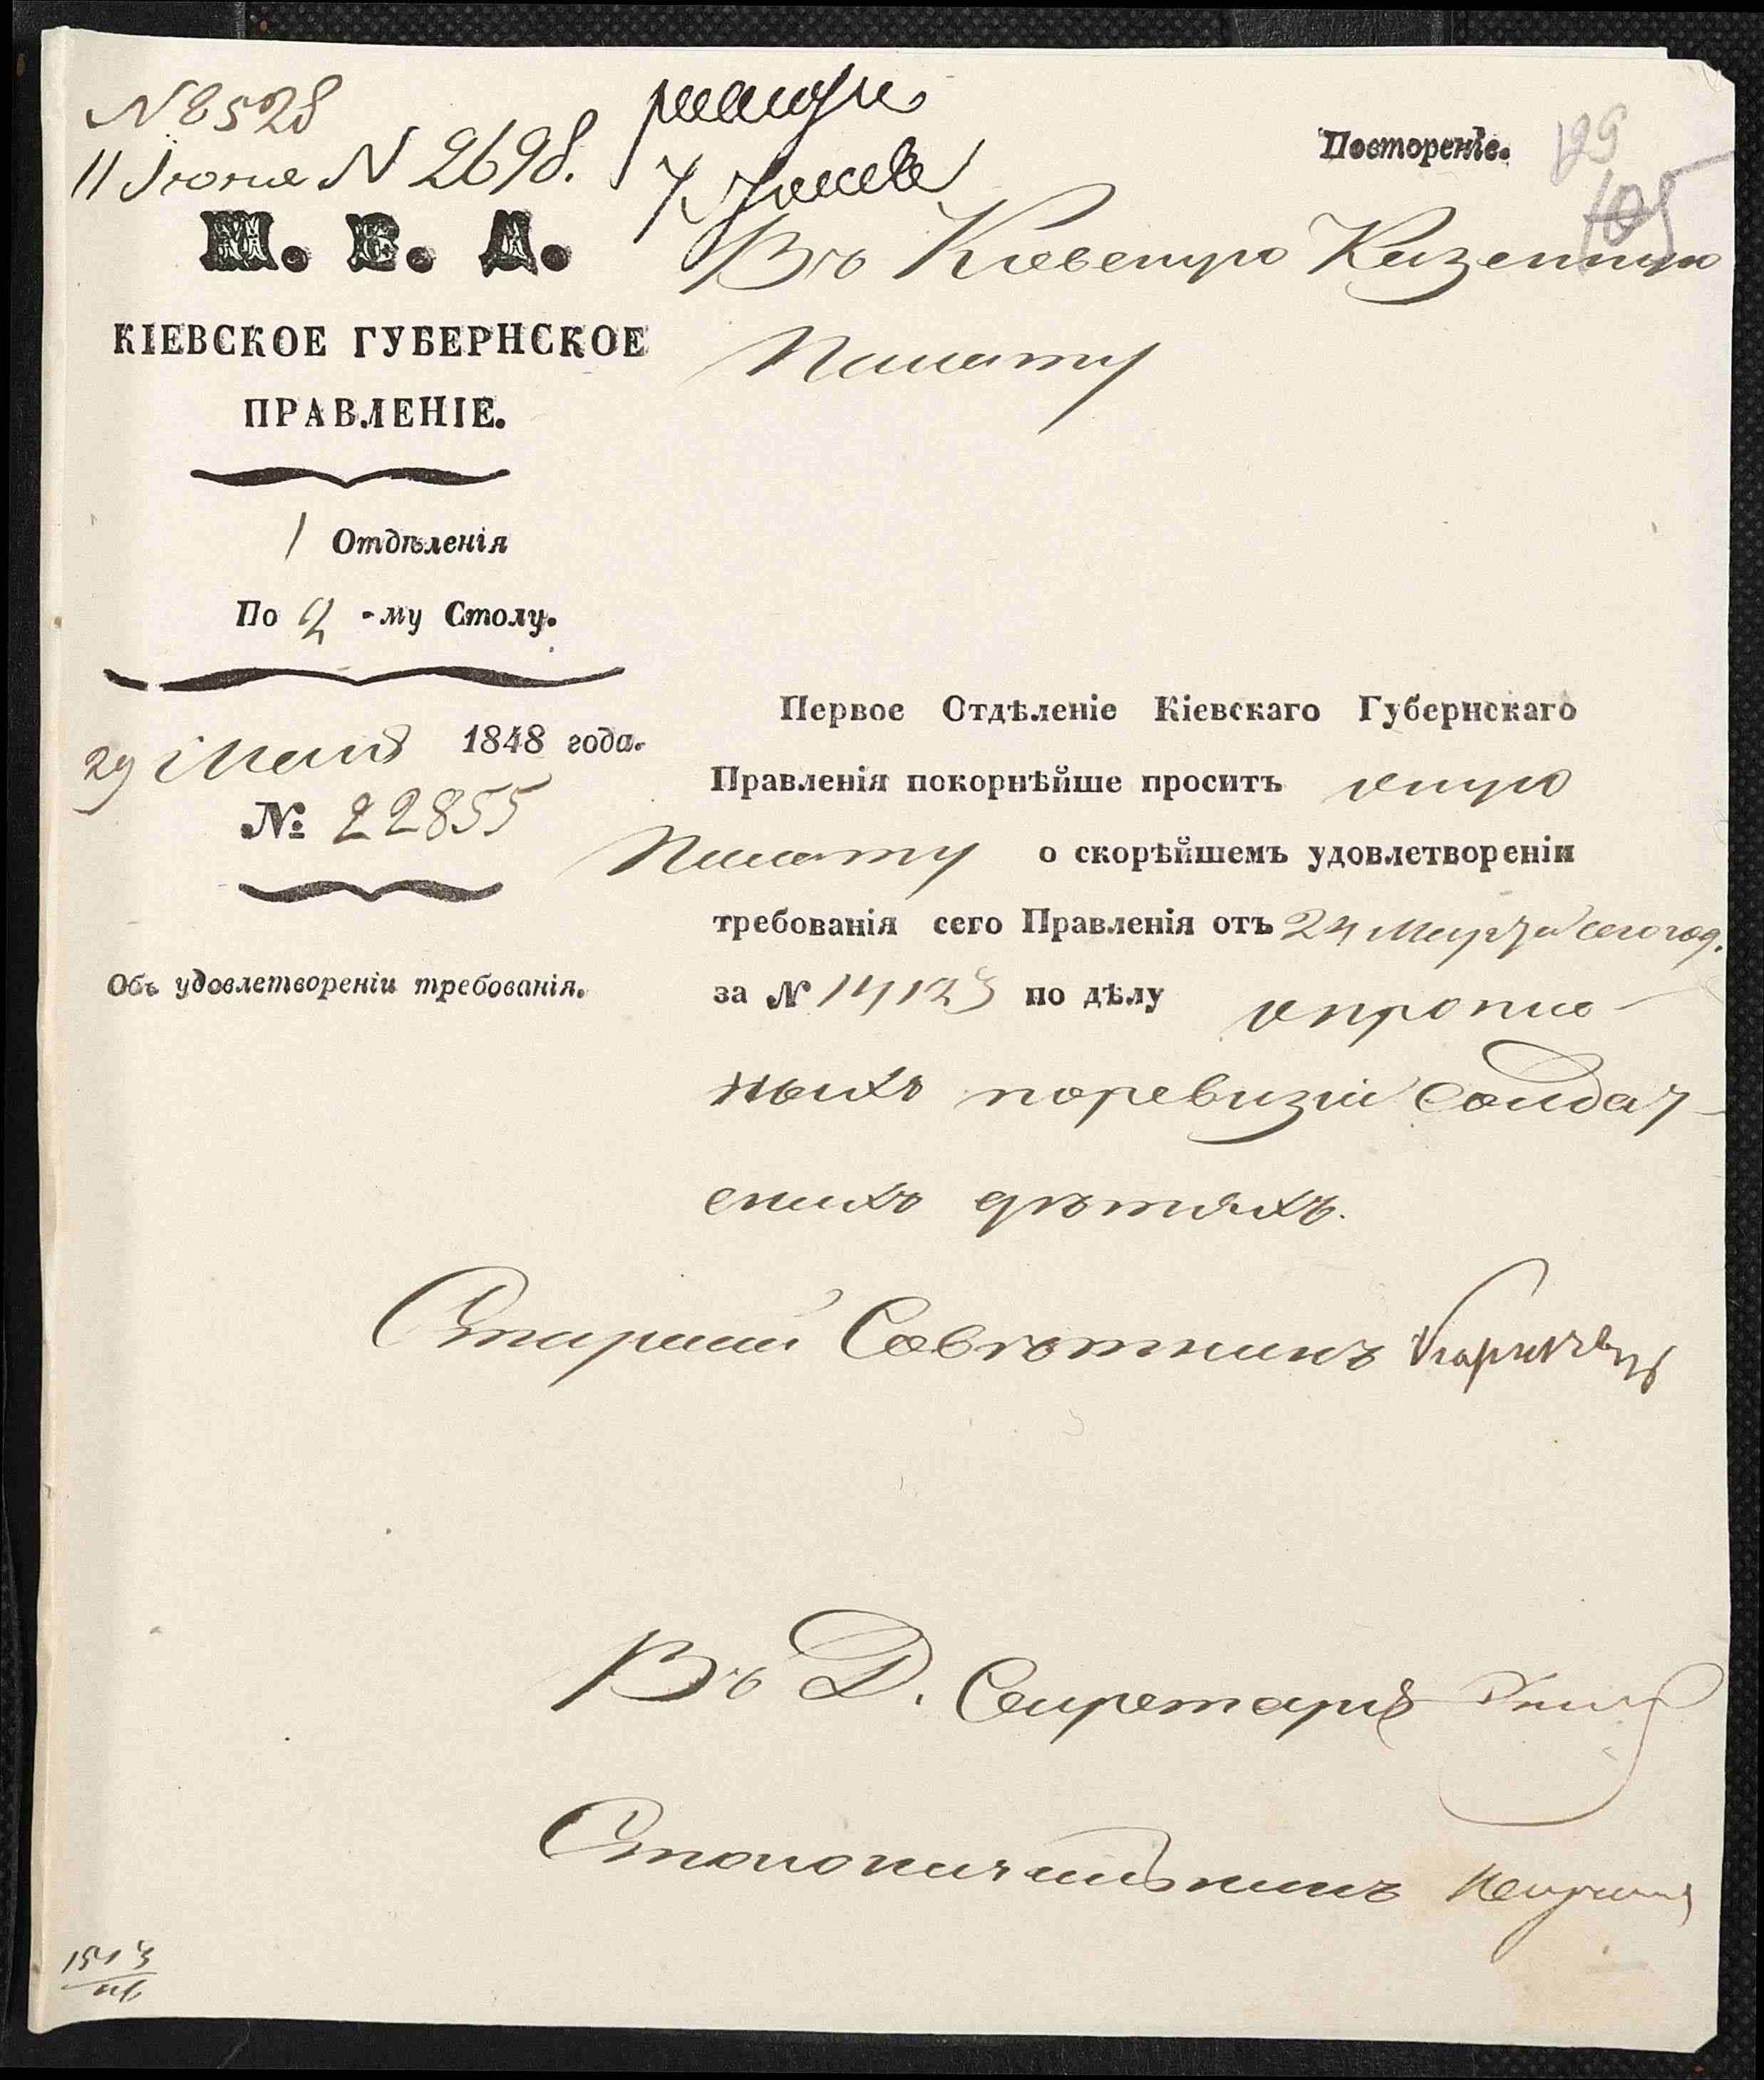 N 8528
11 Іюня N 2698.
7 Іюня
Повтореніе.
М. В. Д.
КІЕВСКОЕ ГУБЕРНСКОЕ
ПРАВЛЕНІЕ.
1 Отдѣленія
По 2 -му Столу.
29 Мая 1848 года.
№ 22855
Объ удовлетвореніи требованія.
Въ Кіевскую Казенную
Палату
Первое Отдѣленіе Кіевскаго Губернскаго
Правленія покорнѣйше проситъ оную
Палату о скорѣйшемъ удовлетвореніи
требованія сего Правленія отъ 24 Марта сего год.
за N 14123 по дѣлу о пропис-
ныхъ по ревизіи Солдат-
скихъ дѣтяхъ.
Старшій Совѣтникъ
Въ Д. Секретаря
Столоначальникъ